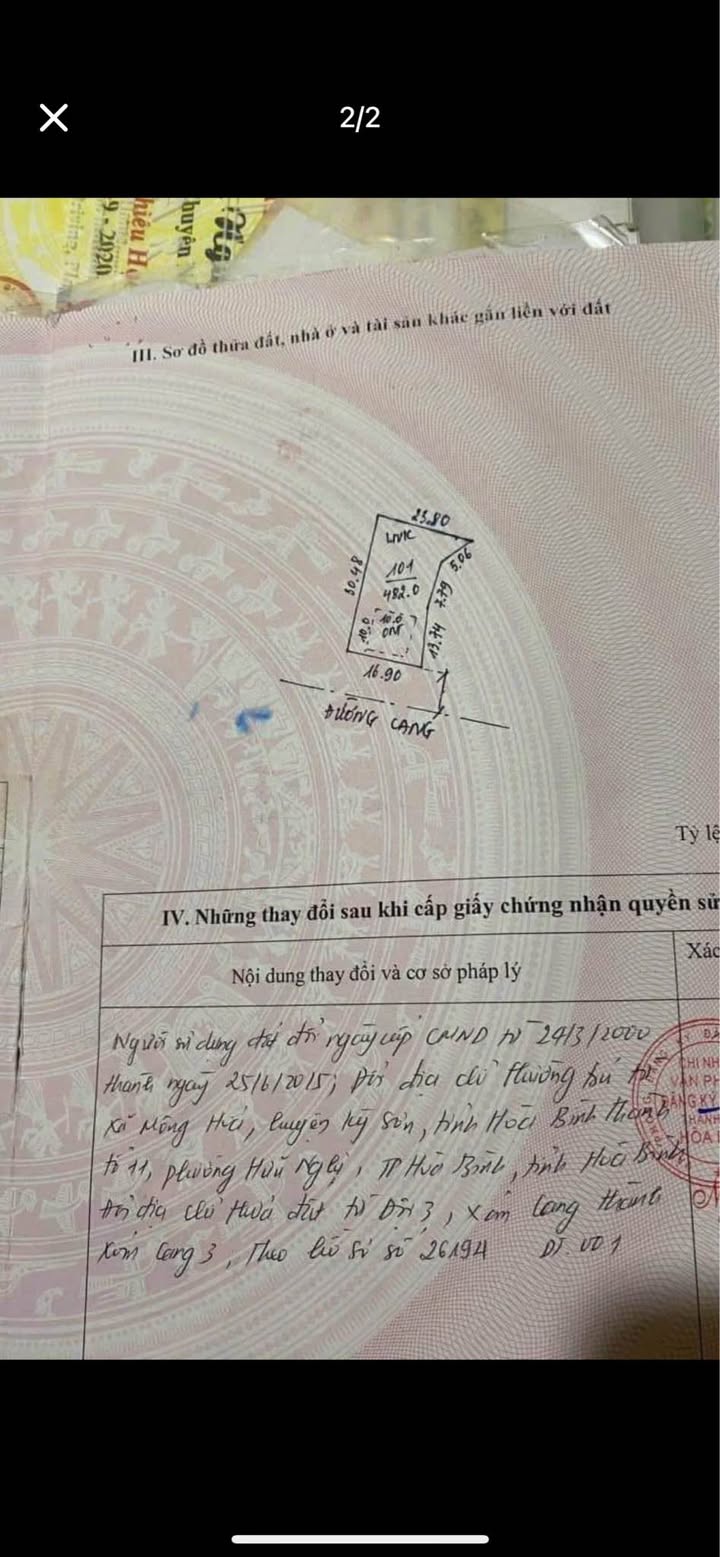 2/2
hiệu H
9.2020
huyện
III. Sơ đồ thửa đất, nhà ở và tài sản khác gắn liền với đất
23.80
LNK
5.06
30.48
101
482.0
7.79
10.0
ONT
13.74
16.90
ĐƯỜNG CANG
Tỷ lệ
IV. Những thay đổi sau khi cấp giấy chứng nhận quyền sử
Nội dung thay đổi và cơ sở pháp lý
Xác
Người sử dụng đất đổi ngày cấp CMND từ 24/3/2000
thành ngày 25/6/2015; Đổi địa chỉ thường trú từ
Xã Mông Hóa, huyện Kỳ Sơn, tỉnh Hòa Bình thành
tổ 11, phường Hữu Nghị, TP Hòa Bình, tỉnh Hòa Bình
Đổi địa chỉ thửa đất từ Đội 3, Xóm Cang thành
Xóm Cang 3, Theo hồ sơ số 26194
CHI NH
VĂN PH
ĐĂNG KÝ
HÒA